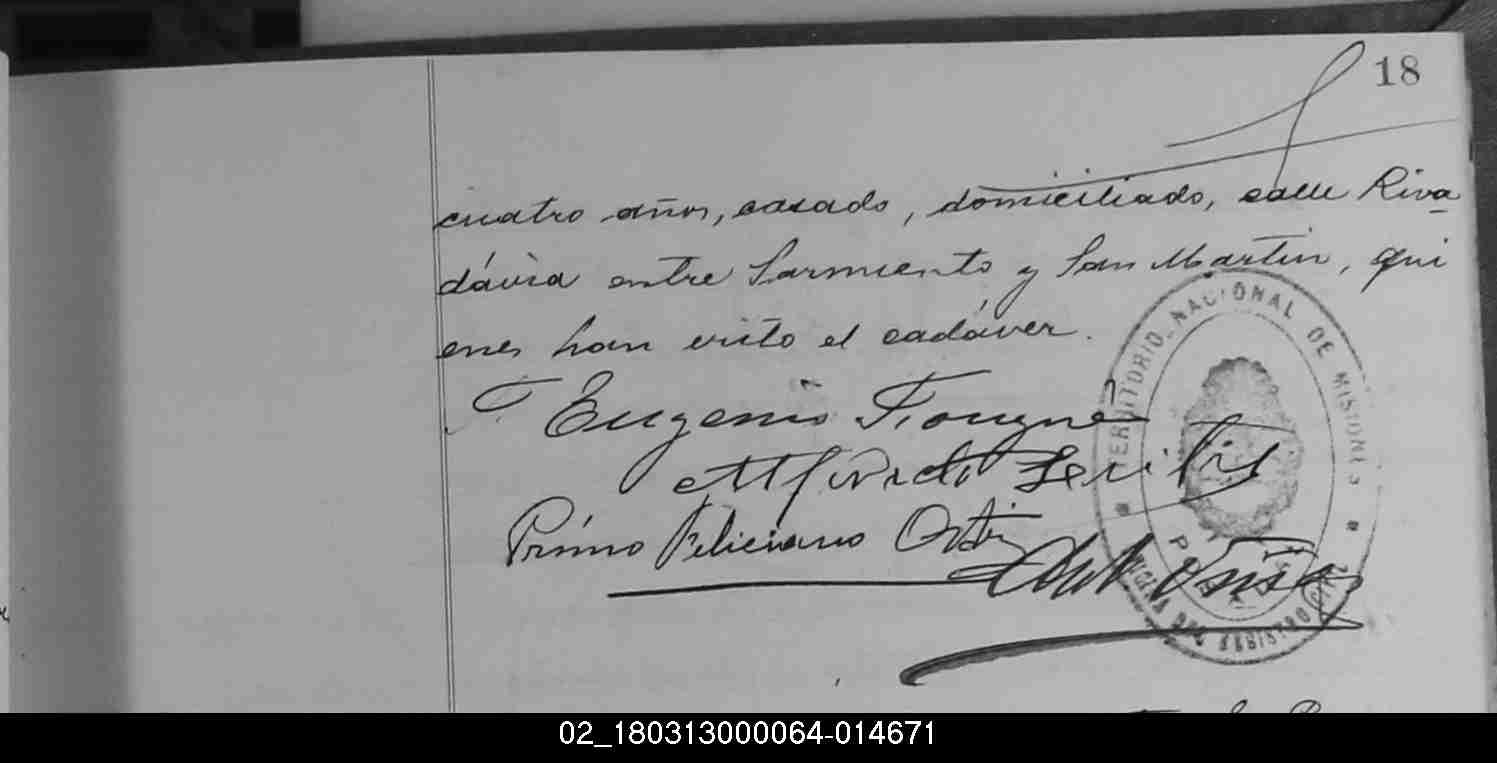 18
cuatro años, casado, domiciliado, calle Riva
dávia entre Sarmiento y San Martin, qui
enes han visto el cadáver.
Eugenio
Alfredo
Primo Feliciano Ortiz
TERRITORIO NACIONAL DE MISIONES
OFICINA DEL REGISTRO CIVIL
02_180313000064-014671